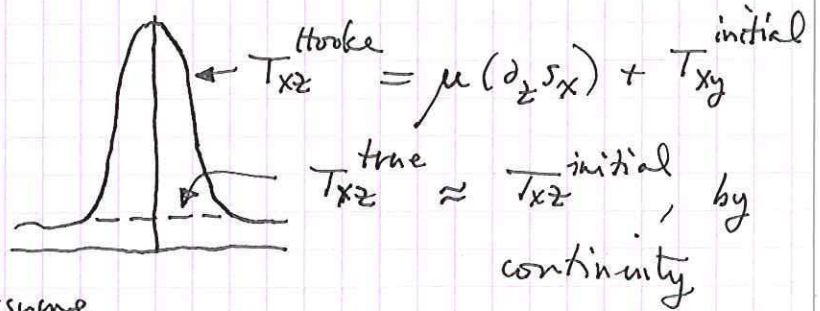 T_xz^Hooke = μ(∂_z s_x) + T_xy^initial
T_xz^true ≈ T_xz^initial, by
continuity